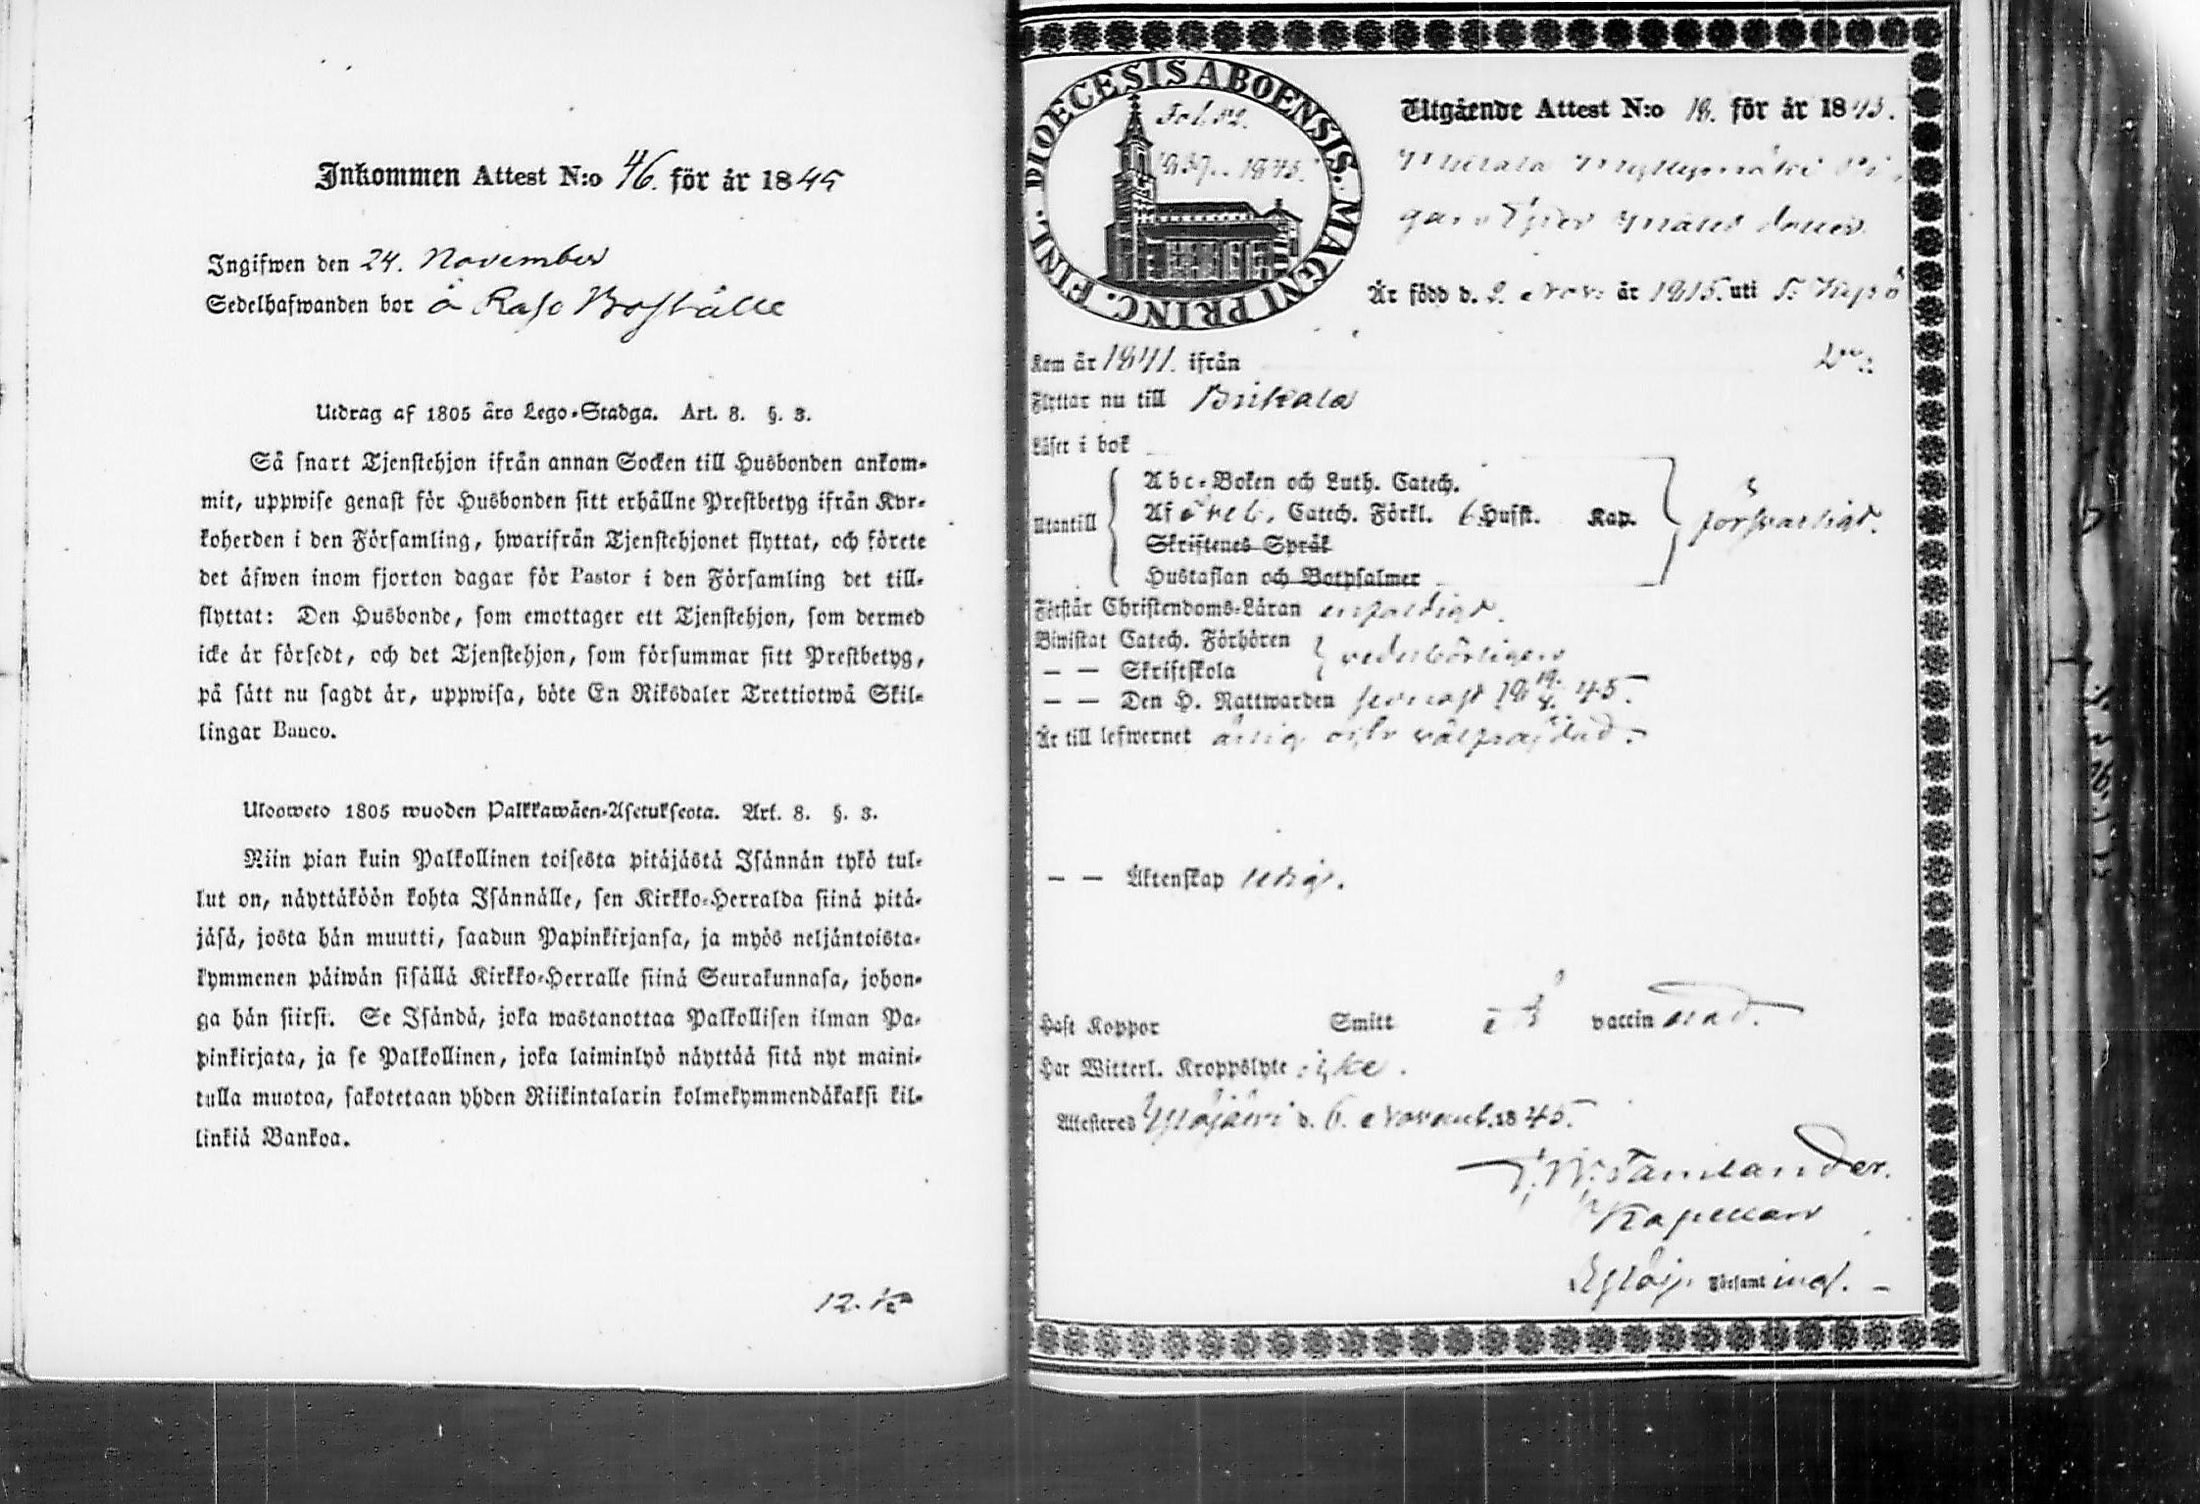 Inkommen Attest N:o 46. för år 1845
Ingifwen den 24. November
Sedelhafwanden bor å Raso Boställe
Utdrag af 1805 års Lego-Stadga. Art. 8. §. 3.
Så snart Tjenstehjon ifrån annan Socken till Husbonden ankom-
mit, uppwise genast för Husbonden sitt erhållne Prestbetyg ifrån Kyr-
koherden i den Församling, hwarifrån Tjenstehjonet flyttat, och förete
det äfwen inom fjorton dagar för Pastor i den Församling det till-
flyttat: Den Husbonde, som emottager ett Tjenstehjon, som dermed
icke är försedt, och det Tjenstehjon, som försummar sitt Prestbetyg,
på sätt nu sagdt är, uppwisa, böte En Riksdaler Trettiotwå Skil-
lingar Banco.
Uloosweto 1805 wuoden Palkkawäen-Asetuksesta. Art. 8. §. 3.
Niin pian kuin Palkollinen toisesta pitäjästä Isännän tykö tul-
lut on, näyttäköön kohta Isännälle, sen Kirkko-Herralda siinä pitä-
jäsä, josta hän muutti, saadun Papinkirjansa, ja myös neljäntoista-
kymmenen päiwän sisällä Kirkko-Herralle siinä Seurakunnasa, johon-
ga hän siirsi. Se Isändä, joka wastanottaa Palkollisen ilman Pa-
pinkirjata, ja se Palkollinen, joka laiminlyö näyttää sitä nyt maini-
tulla muotoa, sakotetaan yhden Riikintalarin kolmekymmendäkaksi kil-
linkiä Bankoa.
12. K
DIOECESIS ABOENSIS. MAGNI PRINC. FINL.
Fol. 82.
1837.-1843.
Utgående Attest N:o 18. för år 1845.
Myllymäki Pi-
gan Matts dotter
Är född d. 2. Nov. år 1815. uti
Kom år 1841. ifrån
Flyttar nu till Birkala
Läser i bok
Utantill
Abc-Boken och Luth. Catech.
Af Catech. Förkl. 6 Husst. Kap.
Skriftenes Språk
Hustaflan och Botpsalmer
försvarligt.
Förstår Christendoms-Läran enfaldigt.
Biwistat Catech. Förhören
— — Skriftskola
vederbörligen
— — Den H. Nattwarden senast 18 19/4. 45.
Är till lefwernet ärlig och välfräjdad.
— — Äktenskap ledig.
Haft Koppor Smitt vaccinerad.
Har Witterl. Kroppslyte icke.
Attesteras Ylöjärvi d. 6. Novemb. 1845.
Tamlander.
Kapellan
Ylöj. Församl ingl.